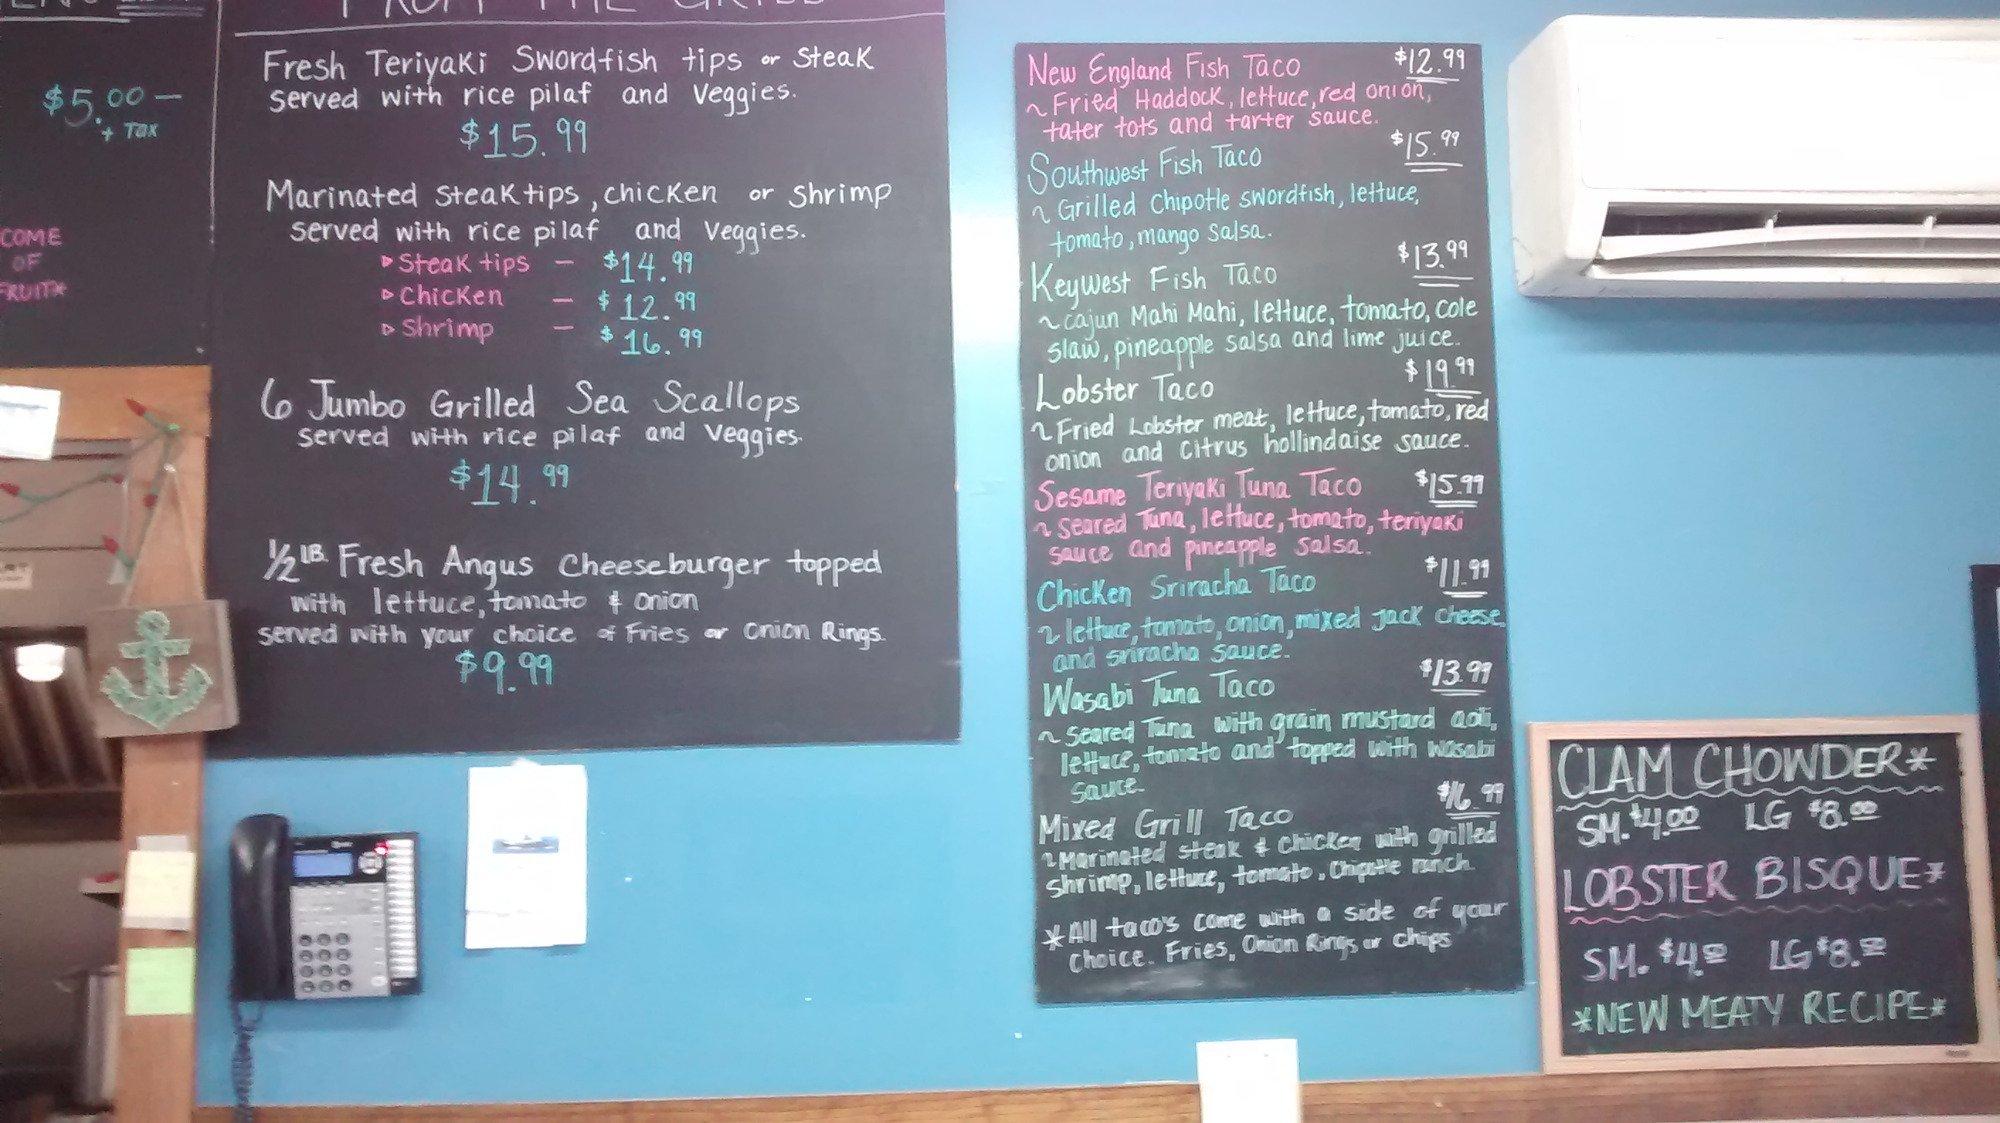 $5.00 —
+ Tax
COME
OF
FRUIT*
FROM THE GRILL
Fresh Teriyaki Swordfish tips or Steak
served with rice pilaf and Veggies.
$15.99
Marinated Steak tips, chicken or Shrimp
served with rice pilaf and Veggies.
▹ Steak tips — $14.99
▹ Chicken — $12.99
▹ Shrimp — $16.99
6 Jumbo Grilled Sea Scallops
served with rice pilaf and Veggies.
$14.99
1/2 LB. Fresh Angus Cheeseburger topped
with lettuce, tomato & onion
served with your choice of Fries or Onion Rings.
$9.99
New England Fish Taco $12.99
~ Fried Haddock, lettuce, red onion,
tater tots and tarter sauce.
Southwest Fish Taco $15.99
~ Grilled Chipotle swordfish, lettuce,
tomato, mango salsa.
Keywest Fish Taco $13.99
~ Cajun Mahi Mahi, lettuce, tomato, cole
slaw, pineapple salsa and lime juice.
Lobster Taco $19.99
~ Fried Lobster meat, lettuce, tomato, red
onion and Citrus hollindaise sauce.
Sesame Teriyaki Tuna Taco $15.99
~ Seared Tuna, lettuce, tomato, teriyaki
sauce and pineapple salsa.
Chicken Sriracha Taco $11.99
~ lettuce, tomato, onion, mixed jack cheese,
and sriracha sauce.
Wasabi Tuna Taco $13.99
~ Seared Tuna with grain mustard aoli,
lettuce, tomato and topped with wasabi
sauce.
Mixed Grill Taco $16.99
~ Marinated steak & chicken with grilled
shrimp, lettuce, tomato, Chipotle ranch
* All taco's come with a side of your
choice. Fries, Onion Rings or chips
CLAM CHOWDER*
SM. $4.00 LG $8.00
LOBSTER BISQUE*
SM. $4.00 LG $8.00
*NEW MEATY RECIPE*